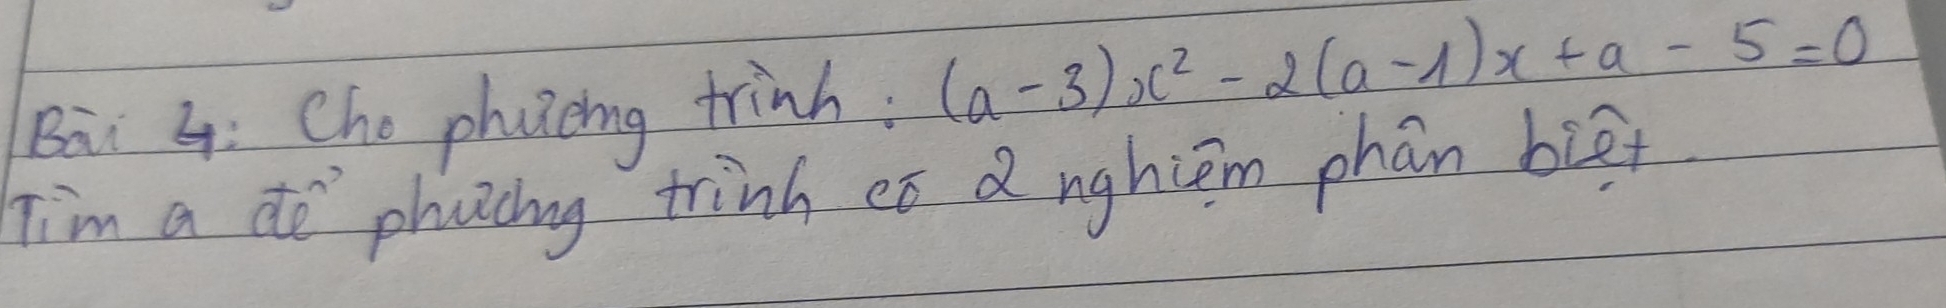 Bài 4: Cho phương trình: (a-3)x² - 2(a-1)x + a - 5 = 0
Tìm a để phương trình có 2 nghiệm phân biệt.